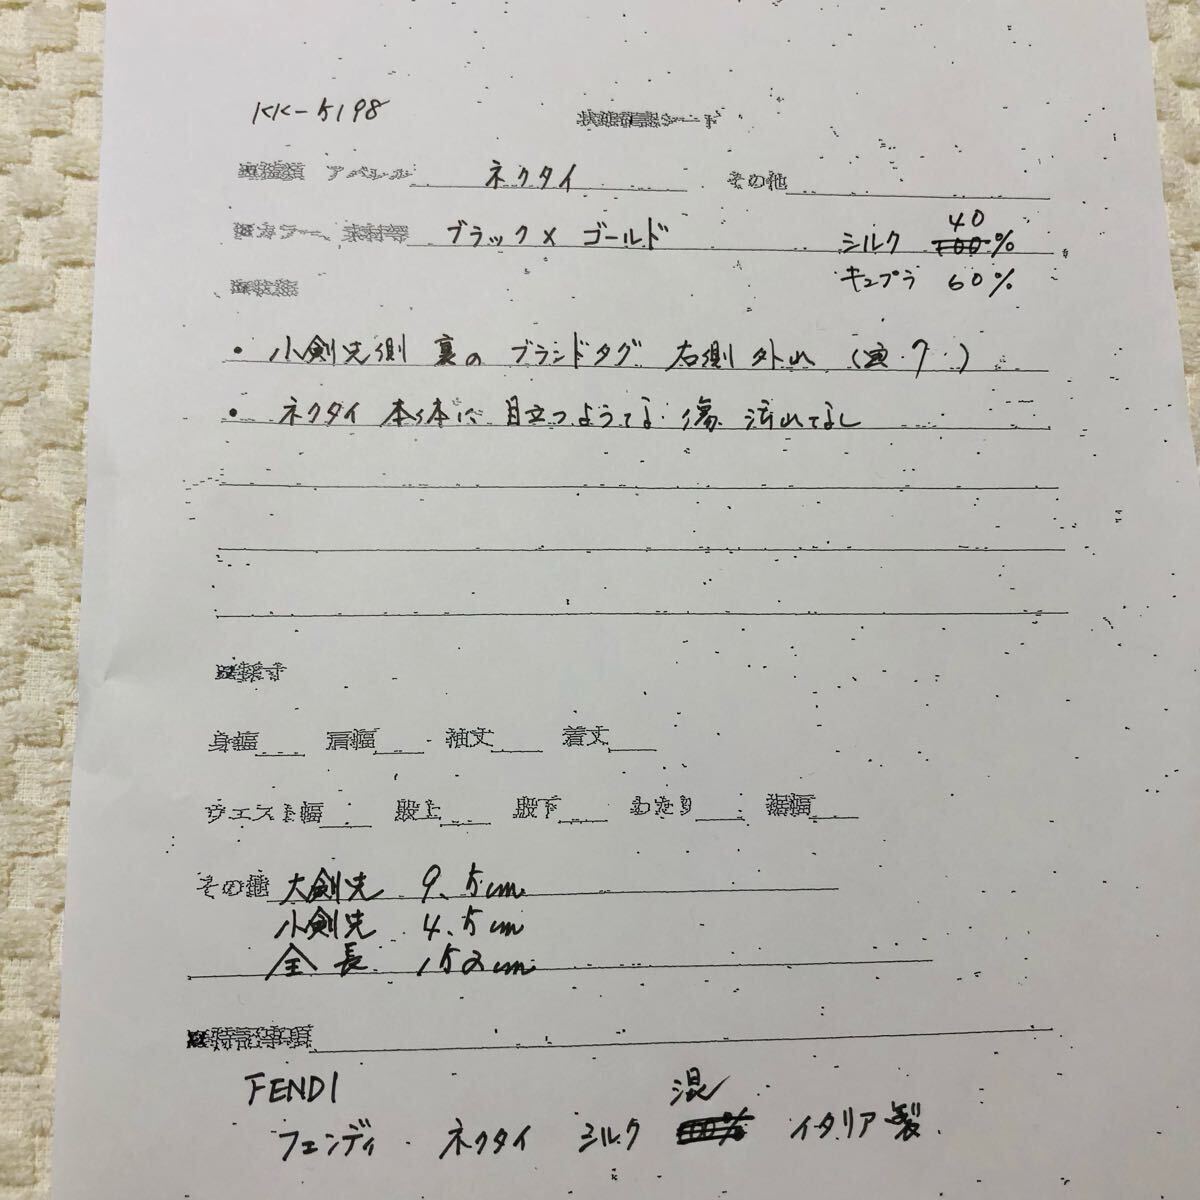 KK-5198
状態確認シード
種類 アパレル ネクタイ その他
カラー、素材等 ブラック×ゴールド シルク 40 100%
キュプラ 60%
状態
・小剣先側 裏の ブランドタグ 右側 外れ (画.7.)
・ネクタイ 本体に 目立つような 傷 汚れなし
採寸
身幅 肩幅 袖丈 着丈
ウエスト幅 股上 股下 わたり 裾幅
その他 大剣先 9.5cm
小剣先 4.5cm
全長 152cm
特記事項
FENDI
フェンディ ネクタイ シルク 混 100% イタリア製